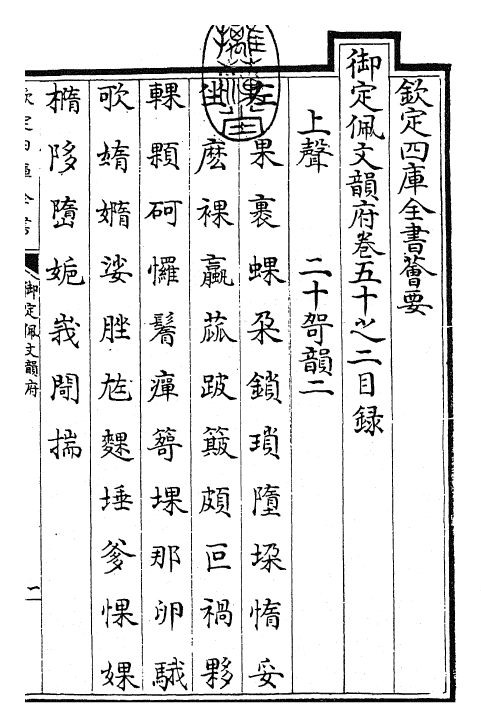 欽定四庫全書薈要
御定佩文韻府卷五十之二目録
上聲 二十哿韻二
左果裹蜾朶鎖瑣墮垜惰妥
坐麽祼蠃蓏跛簸頗叵禍夥
輠顆砢㦬鬌癉笴堁那卵駊
歌媠嫷娑脞尪䴹埵爹惈婐
橢陊嶞娓峩閜揣
御定佩文韻府